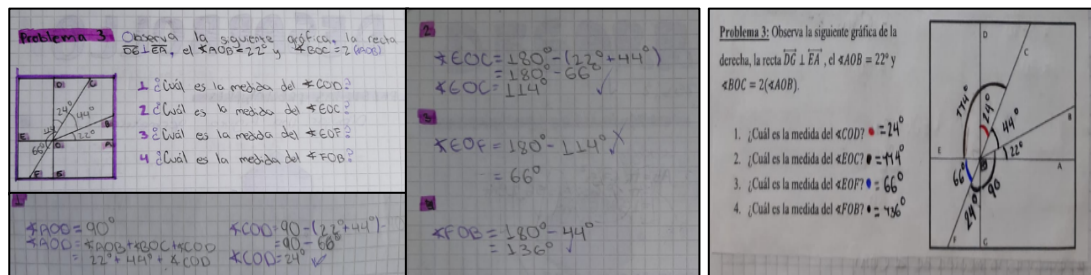 Problema 3 Observa la siguiente gráfica, la recta
DG ⊥ EA, el ∢AOB=22° y ∢BOC=2(AOB)
1 ¿Cuál es la medida del ∢COD?
2 ¿Cuál es la medida del ∢EOC?
3 ¿Cuál es la medida del ∢EOF?
4 ¿Cuál es la medida del ∢FOB?
D C
24° 44°
B
E 22° A
66° O
F G
1
∢AOD = 90°
∢AOD = ∢AOB+∢BOC+∢COD
= 22° + 44° + ∢COD
∢COD = 90 - (22°+44°)
= 90 - 66°
∢COD = 24° ✓
2
∢EOC = 180° - (22° + 44°)
= 180° - 66°
∢EOC = 114° ✓
3
∢EOF = 180° - 114°
= 66°
4
∢FOB = 180° - 44°
= 136° ✓
Problema 3: Observa la siguiente gráfica de la
derecha, la recta DG ⊥ EA , el ∢AOB = 22° y
∢BOC = 2(∢AOB).
1. ¿Cuál es la medida del ∢COD? = 24°
2. ¿Cuál es la medida del ∢EOC? = 114°
3. ¿Cuál es la medida del ∢EOF? = 66°
4. ¿Cuál es la medida del ∢FOB? = 136°
D
C
114° 24°
44° B
E 22° A
66° 90
24°
F G